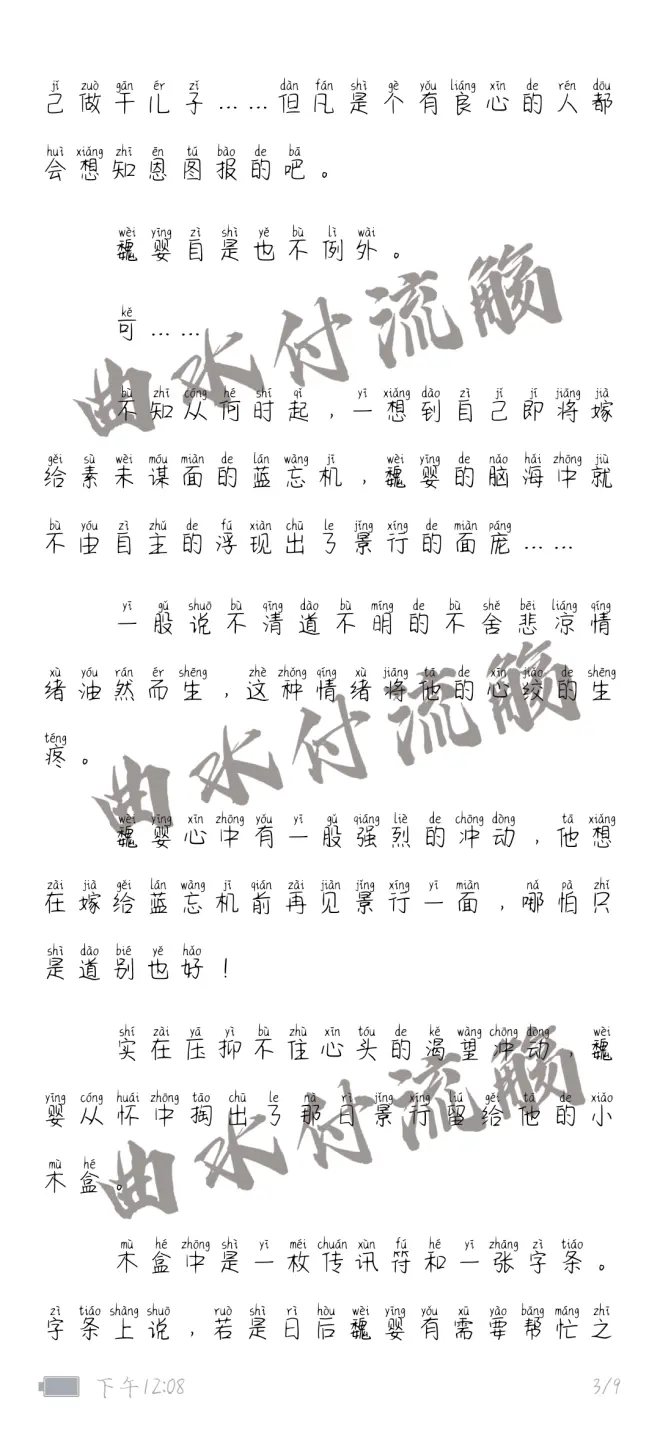 jǐ zuò gān ér zǐ dàn fán shì gè yǒu liáng xīn de rén dōu
己做干儿子……但凡是个有良心的人都
huì xiǎng zhī ēn tú bào de bā
会想知恩图报的吧。
wèi yīng zì shì yě bù lì wài
魏婴自是也不例外。
kě
可……
bù zhī cóng hé shí qǐ yī xiǎng dào zì jǐ jí jiāng jià
不知从何时起,一想到自己即将嫁
gěi sù wèi móu miàn de lán wàng jī wèi yīng de nǎo hǎi zhōng jiù
给素未谋面的蓝忘机,魏婴的脑海中就
bù yóu zì zhǔ de fú xiàn chū le jǐng xíng de miàn páng
不由自主的浮现出了景行的面庞……
yī gǔ shuō bù qīng dào bù míng de bù shě bēi liáng qíng
一股说不清道不明的不舍悲凉情
xù yóu rán ér shēng zhè zhǒng qíng xù jiāng tā de xīn jiǎo de shēng
绪油然而生,这种情绪将他的心绞的生
téng
疼。
wèi yīng xīn zhōng yǒu yī gǔ qiáng liè de chōng dòng tā xiǎng
魏婴心中有一股强烈的冲动,他想
zài jià gěi lán wàng jī qián zài jiàn jǐng xíng yī miàn nǎ pà zhǐ
在嫁给蓝忘机前再见景行一面,哪怕只
shì dào bié yě hǎo
是道别也好!
shí zài yā yì bù zhù xīn tóu de kě wàng chōng dòng wèi
实在压抑不住心头的渴望冲动,魏
yīng cóng huái zhōng tāo chū le nà rì jǐng xíng liú gěi tā de xiǎo
婴从怀中掏出了那日景行留给他的小
mù hé
木盒。
mù hé zhōng shì yī méi chuán xùn fú hé yī zhāng zì tiáo
木盒中是一枚传讯符和一张字条。
zì tiáo shàng shuō ruò shì rì hòu wèi yīng yǒu xū yào bāng máng zhī
字条上说,若是日后魏婴有需要帮忙之
曲水付流觞
曲水付流觞
曲水付流觞
下午12:08
3/9